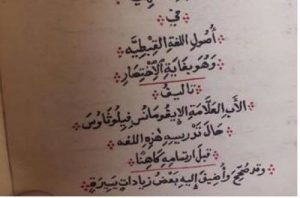 في
أُصُولِ اللغةِ القِبْطِيَّه
وَهُوَ بِغَايَةِ الاِخْتِصَارِ
تأليفُ
الأَبِ العَلَّامَةِ الإِيغُومَانُسِ فِيلُوثَاوُسَ
حَالَ تَدْرِيسِهِ هٰذِهِ اللغه
قَبْلَ ارتِسَامِهِ كَاهِنًا
وقد صُحِّحَ وَأُضِيفَ إليهِ بَعْضُ زِيَادَاتٍ يَسِيرَةٍ